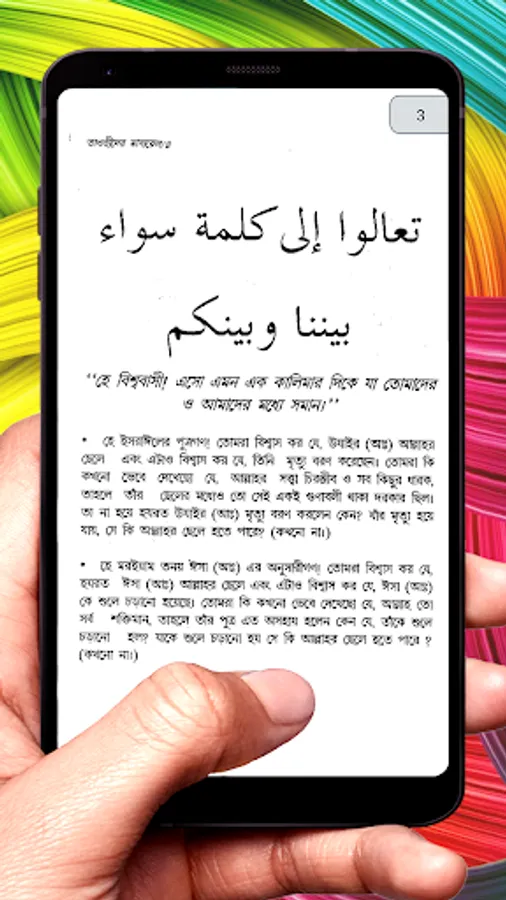 3
তাওহীদের মাযকেরা/৫
تعالوا إلى كلمة سواء
بيننا وبينكم
“হে বিশ্ববাসী! এসো এমন এক কালিমার দিকে যা তোমাদের
ও আমাদের মধ্যে সমান।”
• হে ইসরাঈলের পুত্রগণ! তোমরা বিশ্বাস কর যে, উযাইর (আঃ) আল্লাহর
ছেলে এবং এটাও বিশ্বাস কর যে, তিনি মৃত্যু বরণ করেছেন। তোমরা কি
কখনো ভেবে দেখেছো যে, আল্লাহর সত্ত্বা চিরন্তীব ও সব কিছুর ধারক,
তাহলে তাঁর ছেলের মধ্যেও তো সেই একই গুণাবলী থাকা দরকার ছিল।
তা না হয়ে হযরত উযাইর (আঃ) মৃত্যু বরণ করলেন কেন? যাঁর মৃত্যু হয়ে
যায়, সে কি আল্লাহর ছেলে হতে পারে? (কখনো না।)
• হে মরইয়াম তনয় ঈসা (আঃ) এর অনুসারীগণ! তোমরা বিশ্বাস কর যে,
হযরত ঈসা (আঃ) আল্লাহর ছেলে এবং এটাও বিশ্বাস কর যে, ঈসা (আঃ)
কে শুলে চড়ানো হয়েছে। তোমরা কি কখনো ভেবে দেখেছো যে, আল্লাহ তো
সর্ব শক্তিমান, তাহলে তাঁর পুত্র এত অসহায় হলেন কেন যে, তাঁকে শুলে
চড়ানো হল? যাকে শুলে চড়ানো হয় সে কি আল্লাহর ছেলে হতে পারে ?
(কখনো না।)